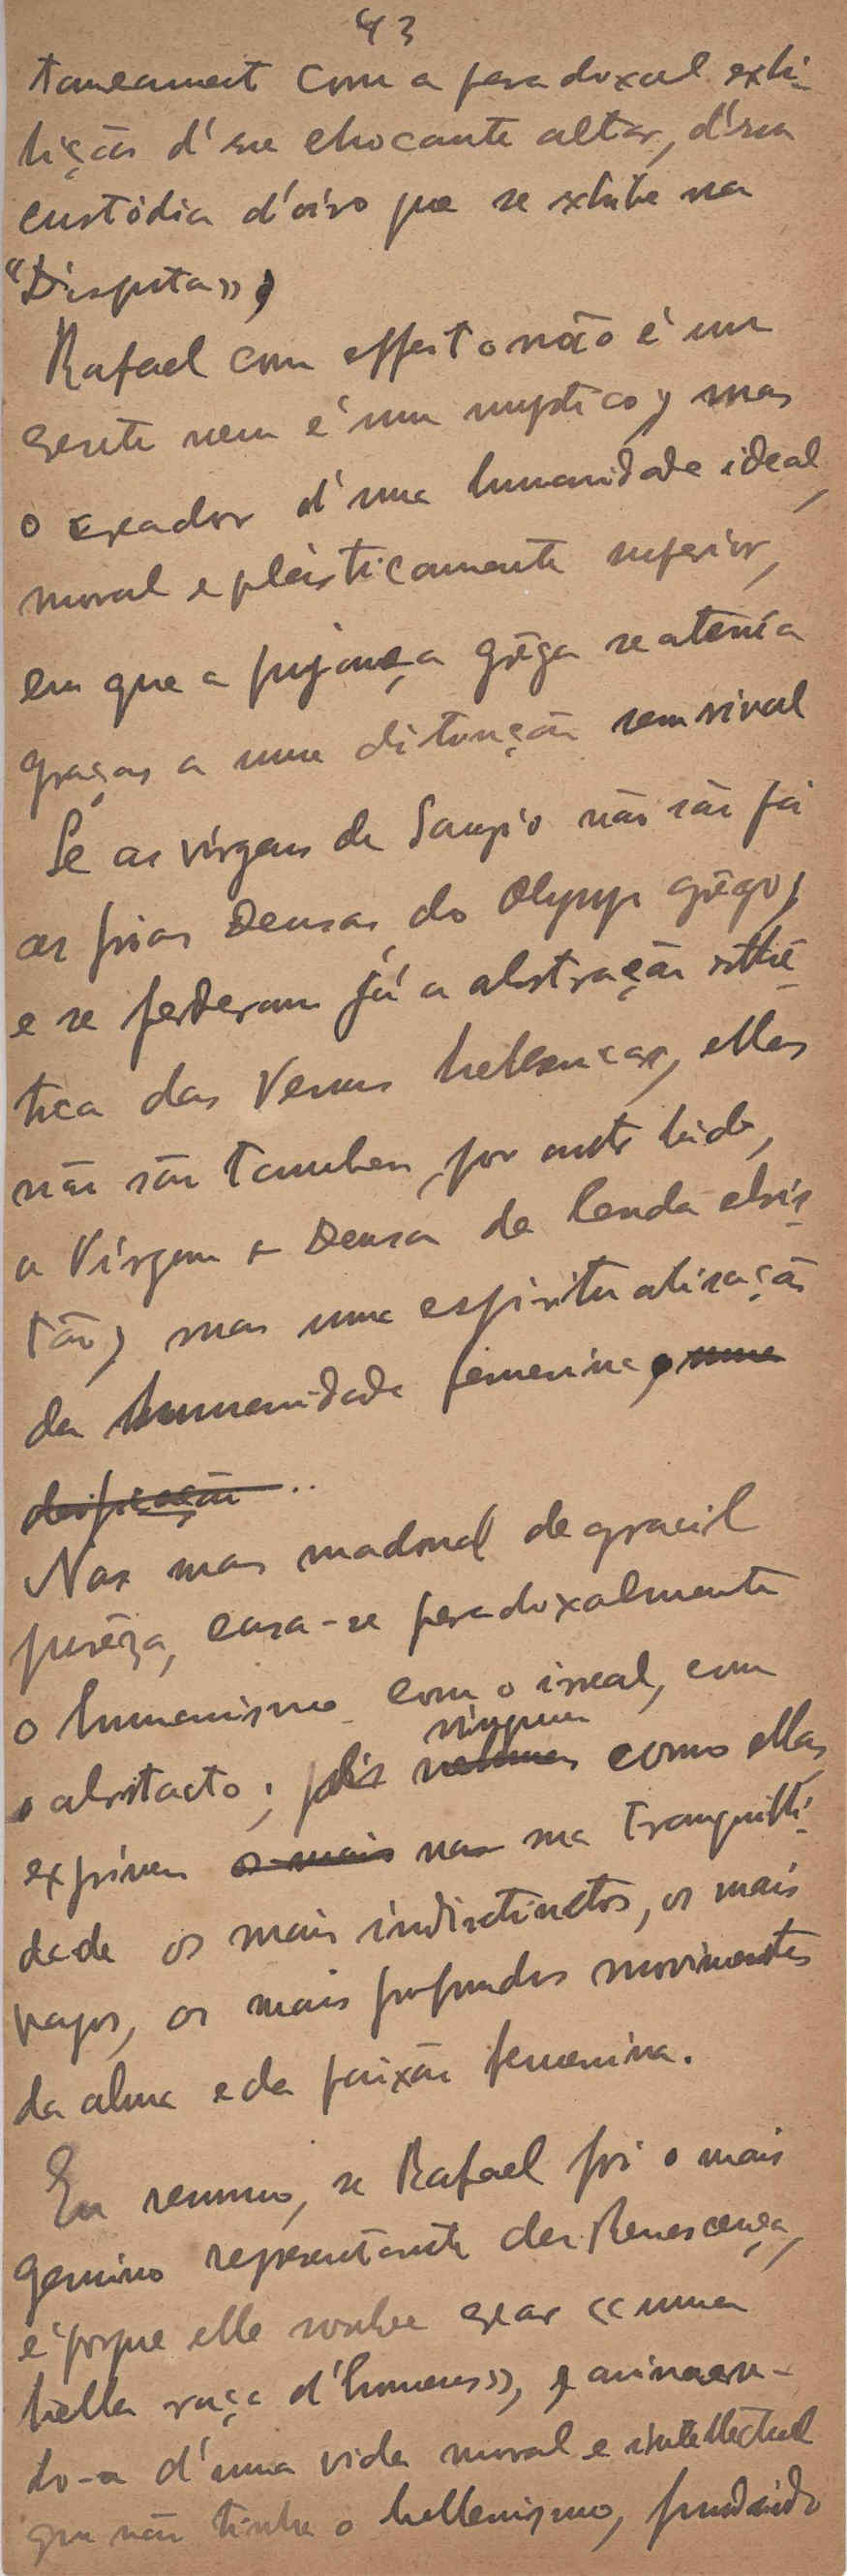 43
taneament com a paradoxal exhi-
bição d'um chocante altar, d'uma
custódia d'oiro que se exhibe na
"Disputa»,
Rafael com effeito não é um
crente nem é um mystico, mas
o creador d'uma humanidade ideal,
moral e plásticamente superior,
em que a pujança grêga se atenúa
graças a uma distinção sem rival
Se as virgens de Sanzio não são já
as frias Deusas do Olympo grêgo,
e se perderam já a abstração esthé-
tica das Venus helenicas, ellas
não são tambem, por outro lado,
a Virgem a Deusa da lenda chris-
tão, mas uma espiritualisação
da humanidade femenina, uma
deificação ..
Nas mas madonal de gracil
purêza, casa-se paradoxalmente
o humanismo com o irreal, com
o abstracto; pois nenhuma ninguem como ellas
exprimem os mais nas na tranquilli-
dade os mais indistinctos, os mais
vagos, os mais profundos movimentos
da alma e da paixão femenina.
Em resumo, se Rafael foi o mais
genuino representante da Renescença,
é porque elle soube crear «uma
bella raça d'homens», e animan-
do-a d'uma vida moral e intellectual
que não tinha o hellenismo, fundindo